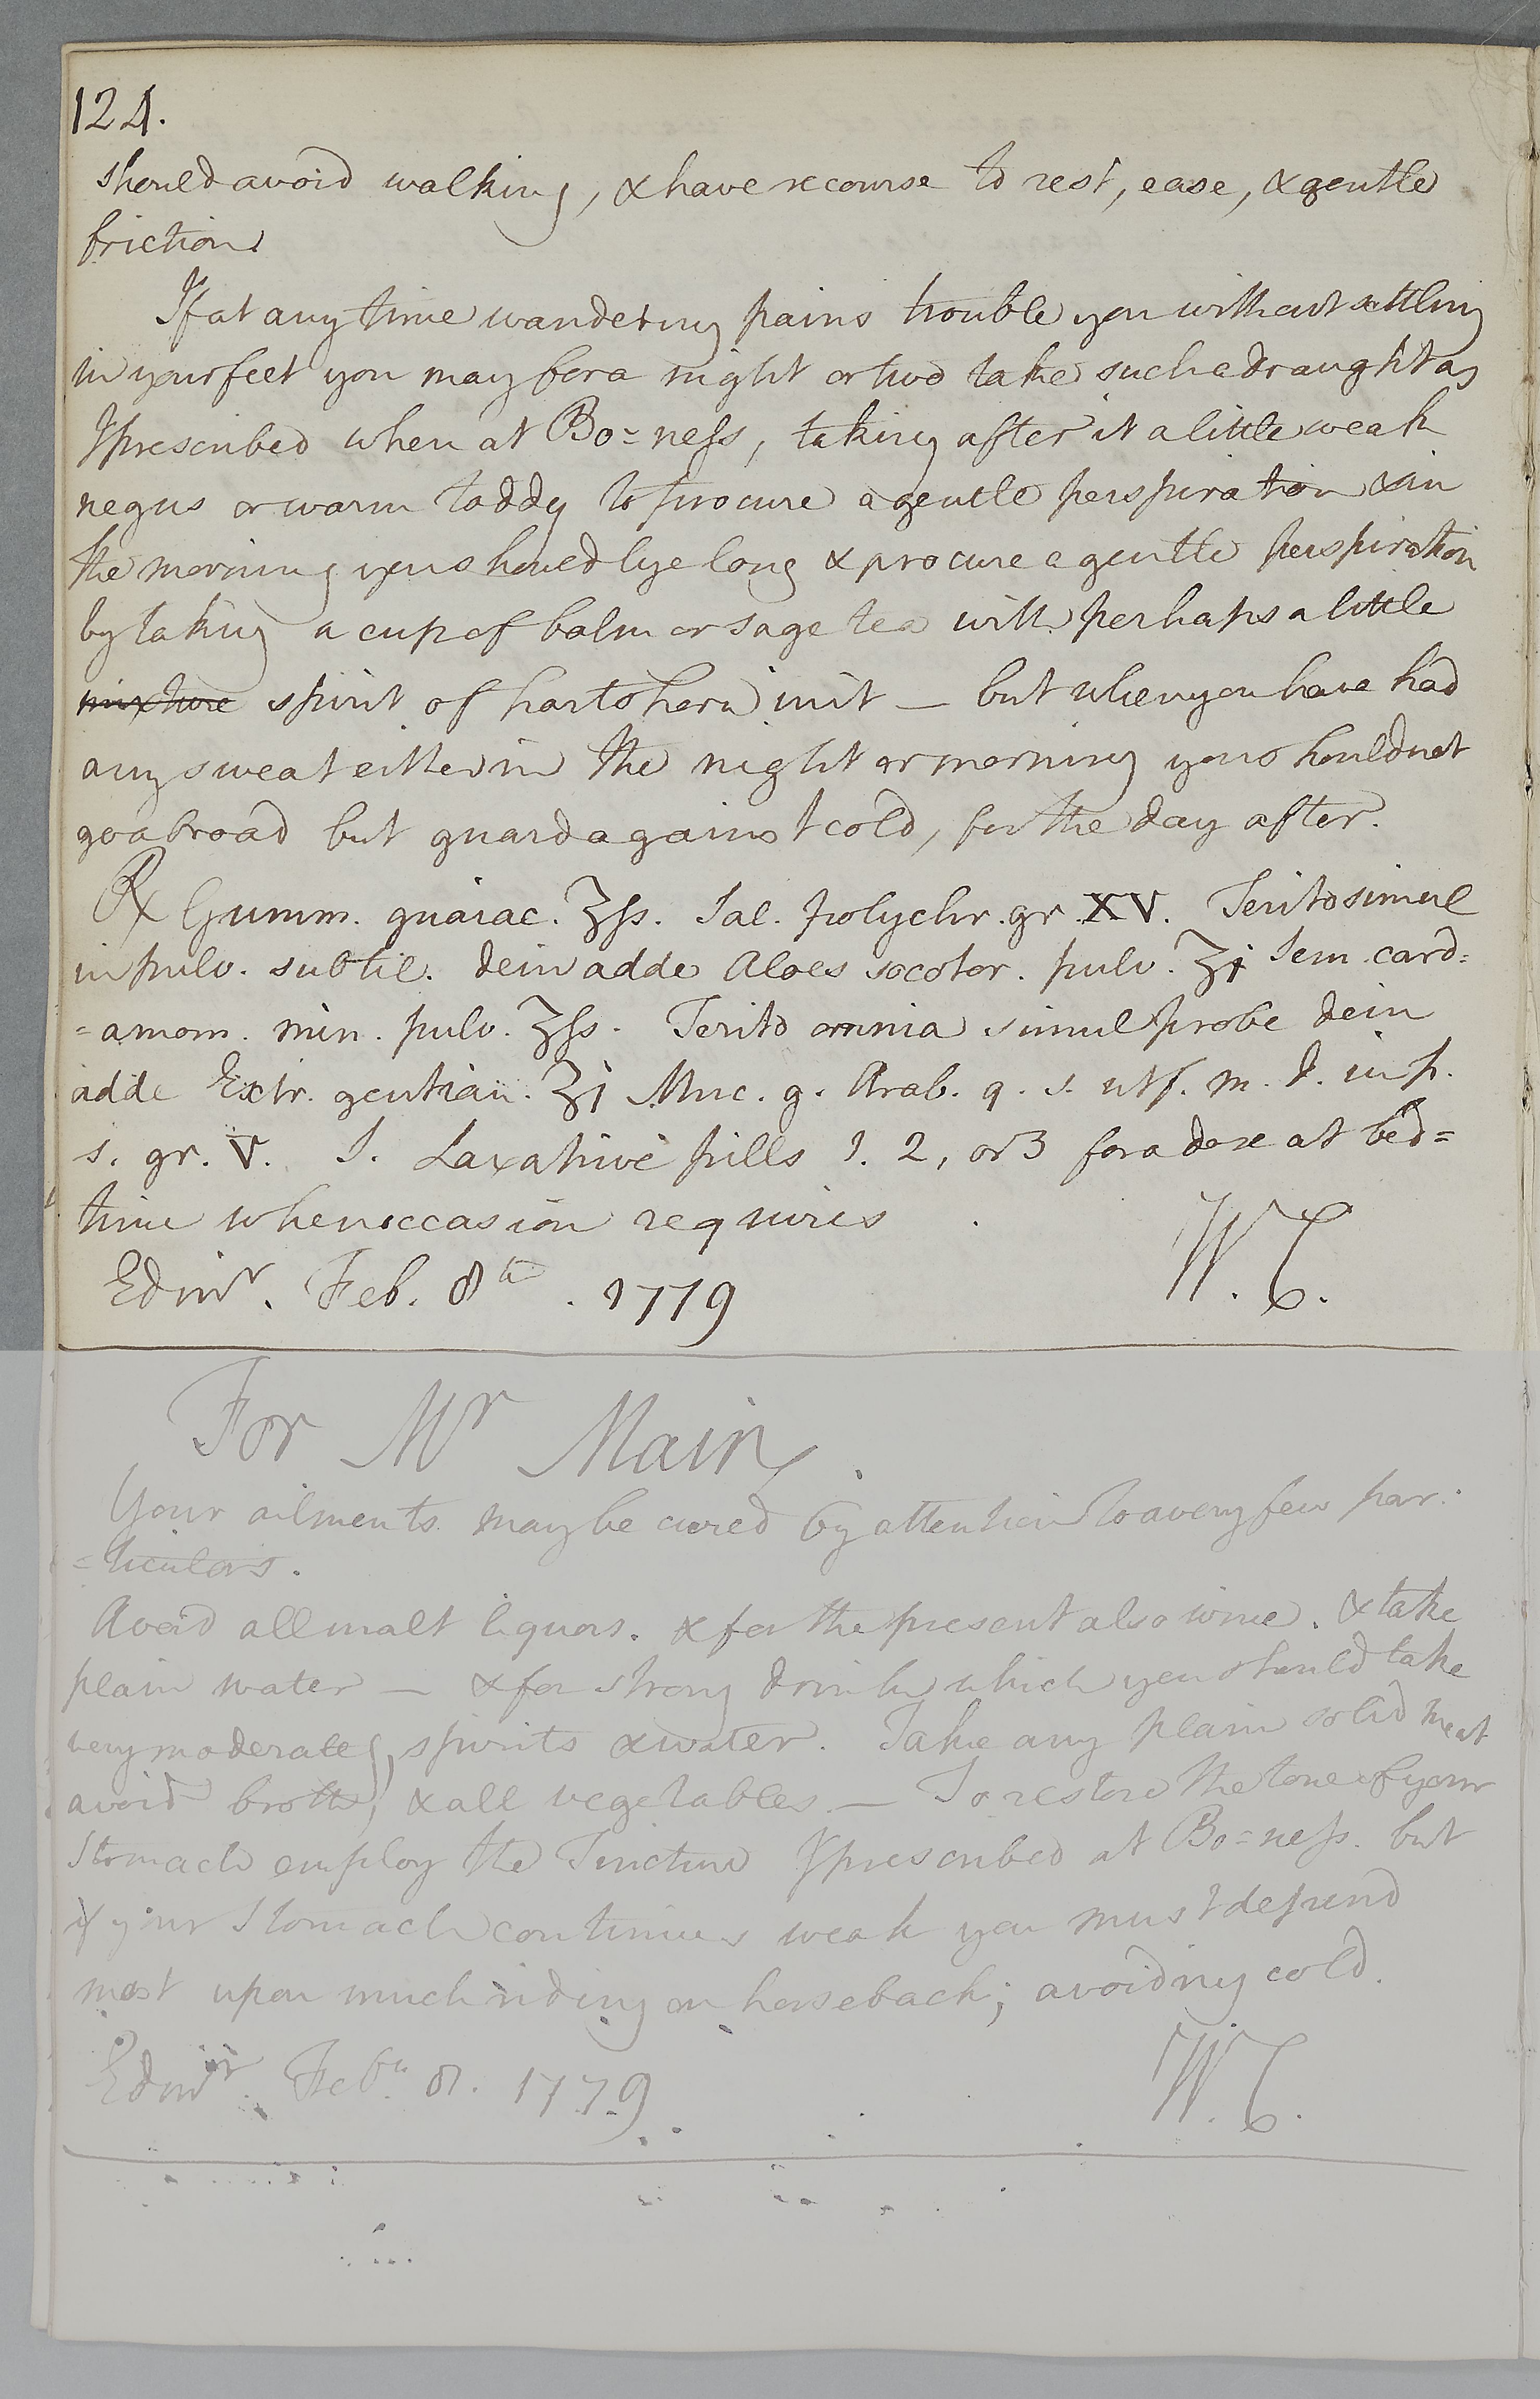 124.
should avoid walking, & have recourse to rest, ease, & gentle
friction
If at any time wandering pains trouble you without settling
in your feet you may for a night or two take such a draught as
I prescribed when at Bo=ness, taking after it a little weak
negus or warm toddy to procure a gentle perspiration & in
the morning you should lye long & procure a gentle perspiration
by taking a cup of balm or sage tea with perhaps a little
mixture spirit of hartshorn in it — but when you have had
any sweat either in the night or morning you should not
go abroad but guard against cold, for the day after.
℞ Gumm. guaiac. ʒſs. Sal. polychr. gr. XV. Terito simul
in pulv. subtil. dein adde Aloes socotor. pulv. ʒi Sem. card=
=amom. min. pulv. ʒſs. Terito omnia simul probe dein
adde Extr. gentian. ʒi Muc. g. Arab. q. s. ut f. m. d. in p.
s. gr. V. S. Laxative pills 1. 2, or 3 for a dose at bed=
time when occasion requires
W. C.
Edinr. Feb. 8th. 1779
For Mr Main.
Your ailments may be cured by attention to a very few par=
=ticulars.
Avoid all malt liquors. & for the present also wine. & take
plain water — & for strong drink which you should take
very moderately, spirits & water. Take any plain solid meat
avoid broths, & all vegetables — To restore the tone of your
Stomach employ the Tincture I prescribed at Bo=ness. but
if your Stomach continues weak you must depend
most upon much riding on horseback; avoiding cold.
Edinr. Feby 8. 1779
W. C.